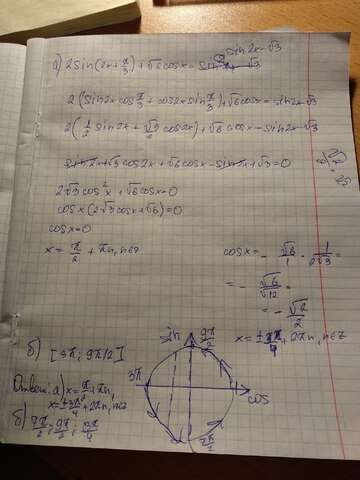 а) 2sin(2x+π/3)+√6cosx=sin2x-√3
2(sin2x cos π/3 + cos2x sin π/3)+√6cosx=sin2x-√3
2(1/2 sin2x + √3/2 cos2x)+√6cosx-sin2x+√3=0
sin2x+√3cos2x+√6cosx-sin2x+√3=0
2√3cos²x+√6cosx=0
cosx(2√3cosx+√6)=0
cosx=0
x=π/2+πn, n∈z
cosx=-√6/1·1/2√3=
=-√6/√12=
=-√2/2
x=±3π/4+2πn, n∈z
б) [3π; 9π/2]
sin
9π/2
3π
cos
7π/2
Ответ: а) x=π/2+πn,
x=±3π/4+2πn, n∈z
б) 7π/2; 9π/2; 13π/4